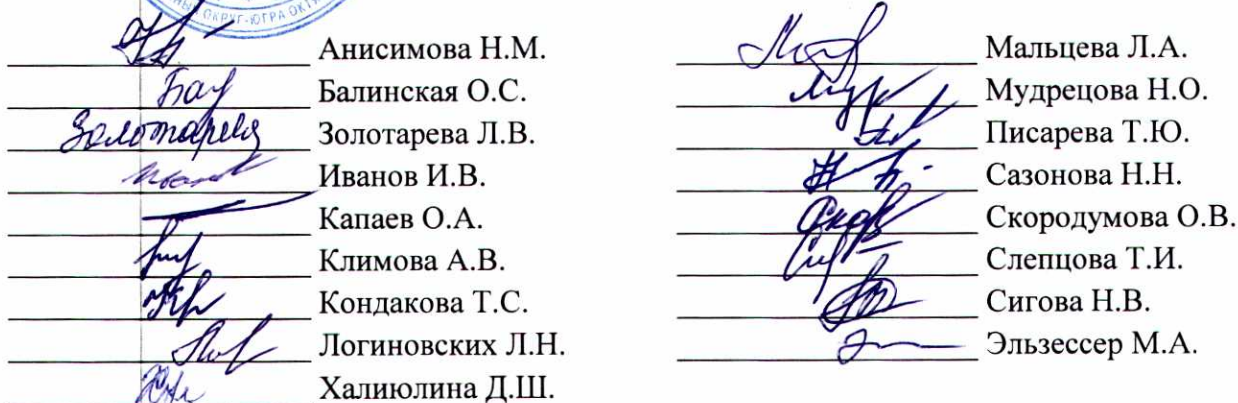 ОКРУГ-ЮГРА
Анисимова Н.М.
Балинская О.С.
Золотарева Золотарева Л.В.
Иванов И.В.
Капаев О.А.
Климова А.В.
Кондакова Т.С.
Логиновских Л.Н.
Халиюлина Д.Ш.
Мальцева Л.А.
Мудрецова Н.О.
Писарева Т.Ю.
Сазонова Н.Н.
Скородумова О.В.
Слепцова Т.И.
Сигова Н.В.
Эльзессер М.А.